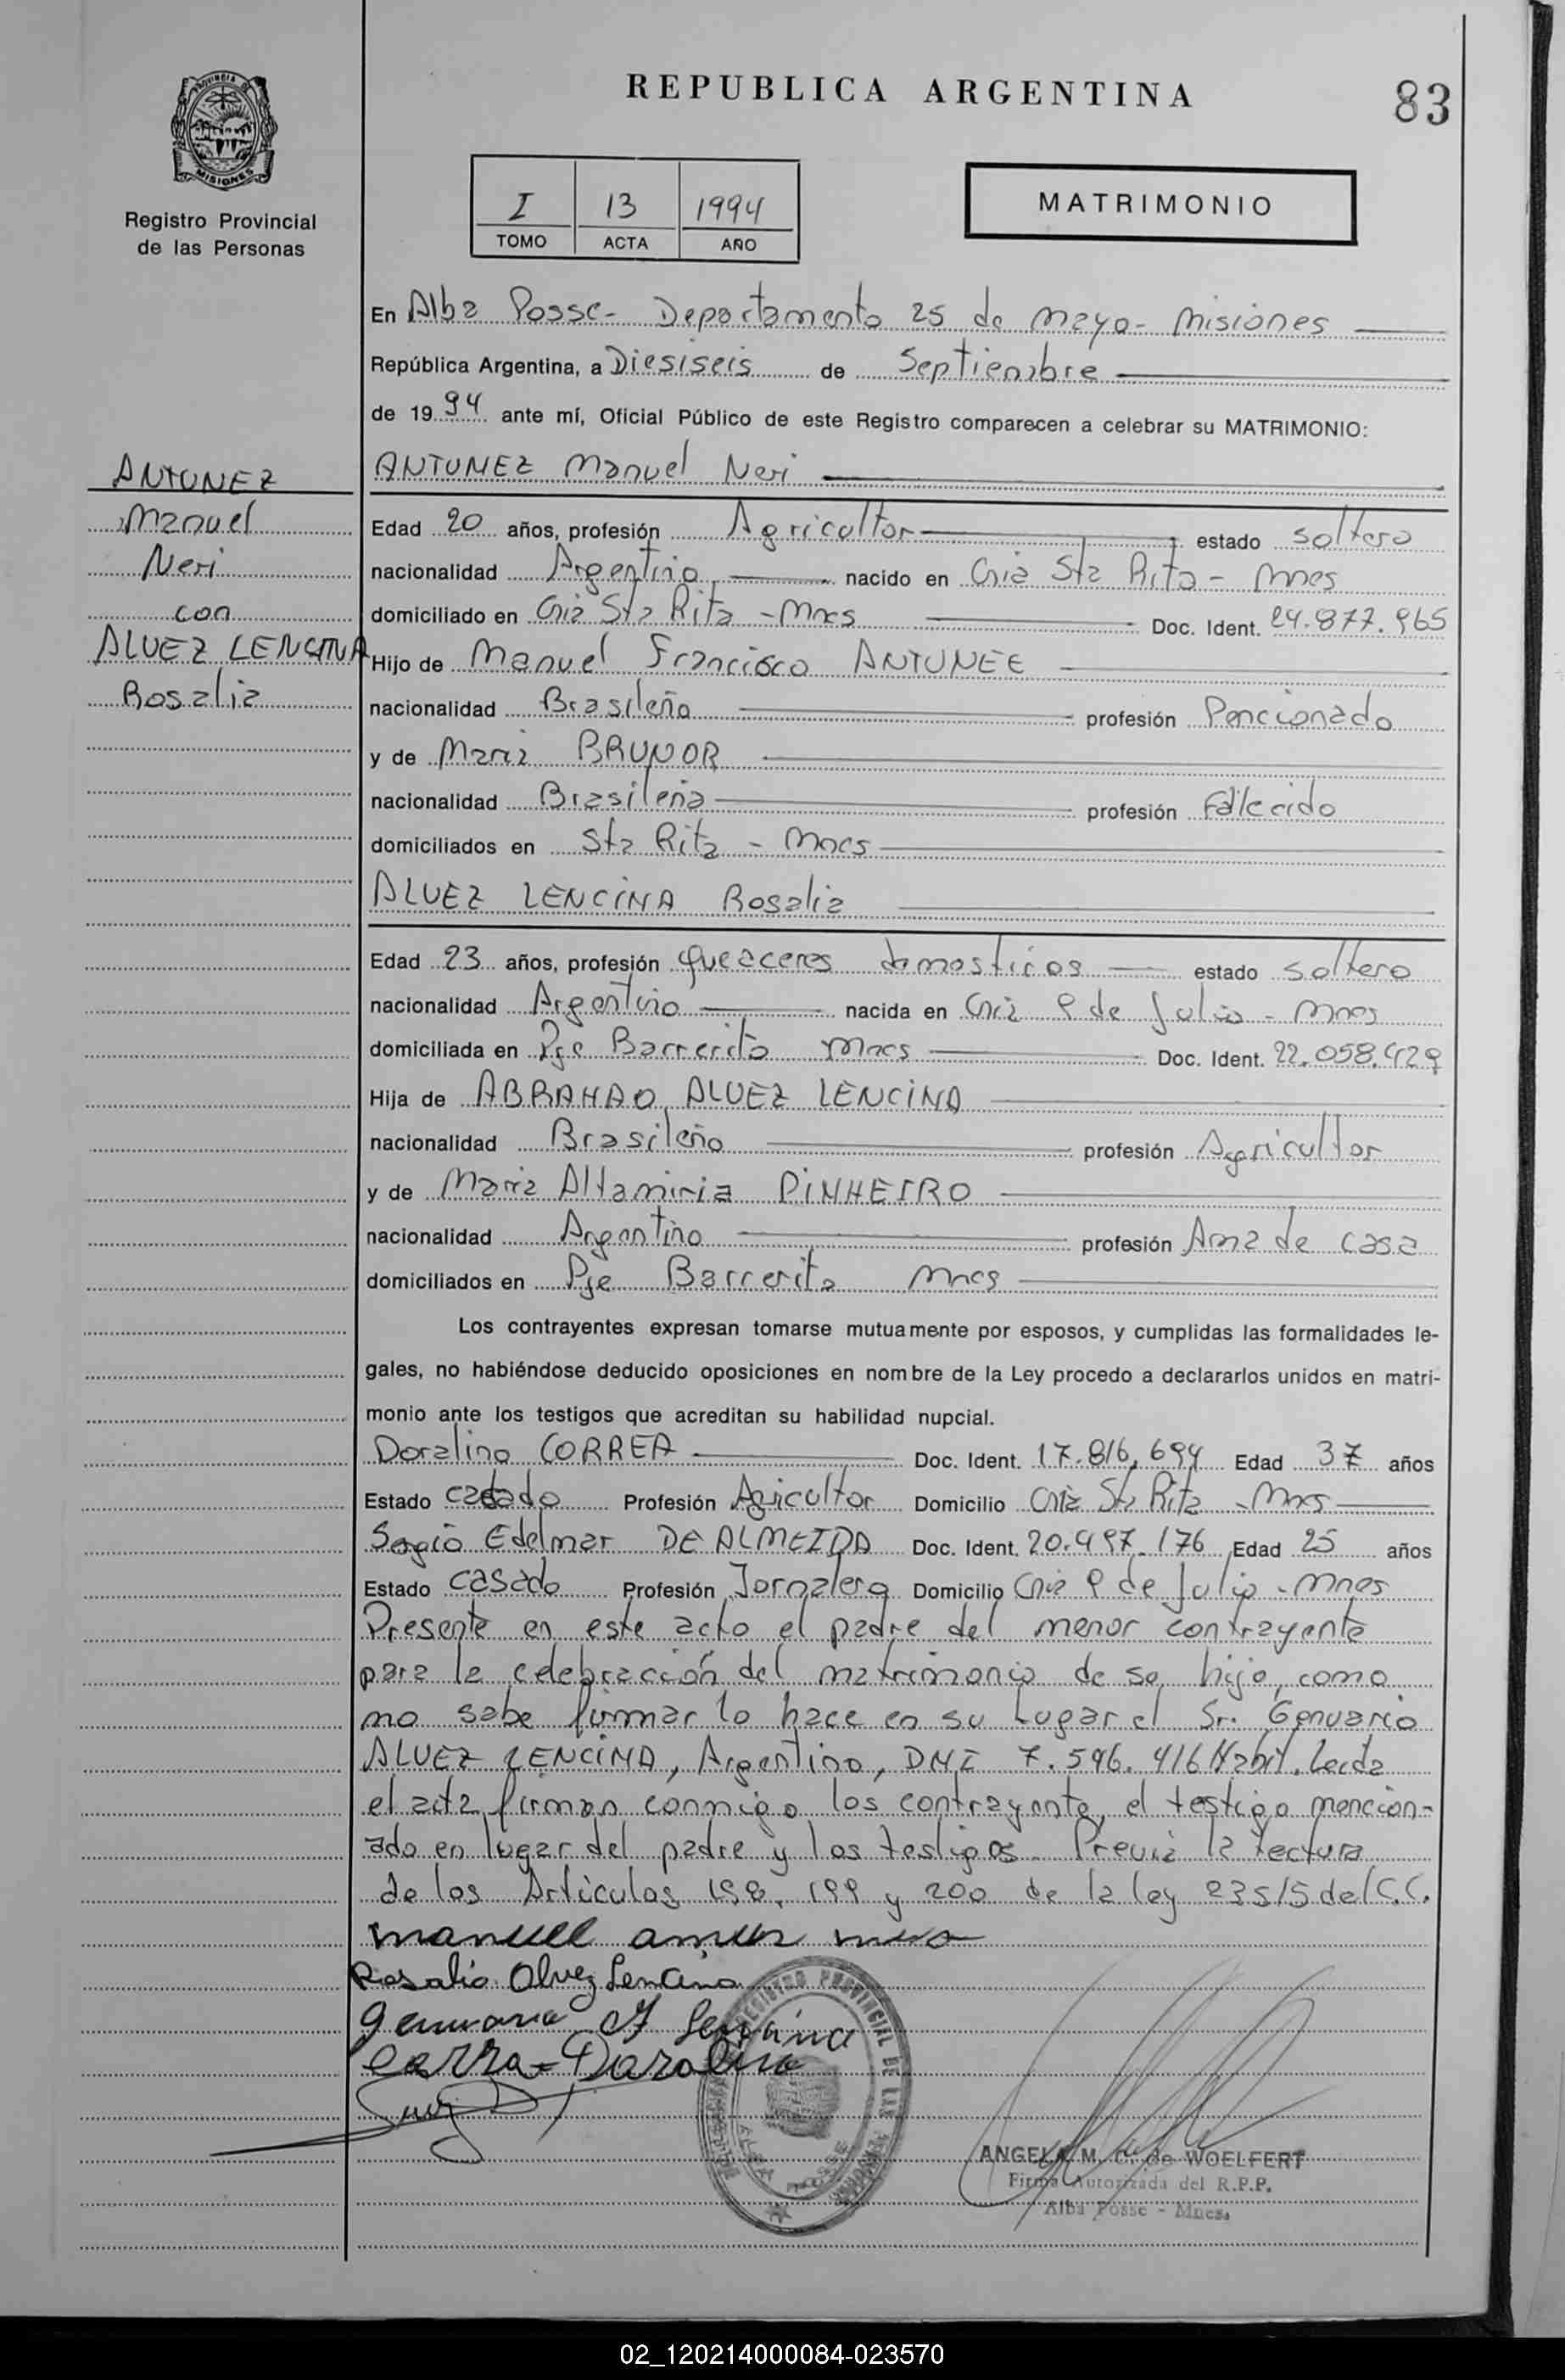 REPUBLICA ARGENTINA
83
PROVINCIA DE MISIONES
Registro Provincial
de las Personas
I 13 1994
TOMO ACTA AÑO
MATRIMONIO
En Alba Posse- Departamento 25 de mayo- Misiones
República Argentina, a Diesiseis de Septiembre
de 1994 ante mí, Oficial Público de este Registro comparecen a celebrar su MATRIMONIO:
ANTUNEZ
Manuel
Neri
con
ALVEZ LENCINA
Rosalia
ANTUNEZ Manuel Neri
Edad 20 años, profesión Agricultor estado soltero
nacionalidad Argentino nacido en Cnia Sta Rita - Mnes
domiciliado en Cnia Sta Rita - Mnes Doc. Ident. 24.877.965
Hijo de Manuel Francisco ANTUNEZ
nacionalidad Brasileño profesión Pencionado
y de Maria BRUNOR
nacionalidad Brasileña profesión Fallecido
domiciliados en Sta Rita - Mnes
ALVEZ LENCINA Rosalia
Edad 23 años, profesión queaceres domosticos estado soltero
nacionalidad Argentino nacida en Cnia 9 de Julio - Mnes
domiciliada en Pje Barrerito Mnes Doc. Ident. 22.058.429
Hija de ABRAHAO ALVEZ LENCINA
nacionalidad Brasileño profesión Agricultor
y de Maria Altamiria PINHEIRO
nacionalidad Argentino profesión Ama de casa
domiciliados en Pje Barrerito Mnes
Los contrayentes expresan tomarse mutuamente por esposos, y cumplidas las formalidades le-
gales, no habiéndose deducido oposiciones en nombre de la Ley procedo a declararlos unidos en matri-
monio ante los testigos que acreditan su habilidad nupcial.
Doralino CORREA Doc. Ident. 17.816.694 Edad 37 años
Estado casado Profesión Agricultor Domicilio Cnia Sta Rita - Mnes
Sergio Edelmar DE ALMEIDA Doc. Ident. 20.497.176 Edad 25 años
Estado casado Profesión Jornalero Domicilio Cnia 9 de Julio - Mnes
Presente en este acto el padre del menor contrayente
para la celebración del matrimonio de su hijo, como
no sabe firmar lo hace en su lugar el Sr. Genuario
ALVEZ LENCINA, Argentino, DNI 7.546.416 Habil. Leida
el acta firman conmigo los contrayente, el testigo mencion-
ado en lugar del padre y los testigos. Previa la lectura
de los Articulos 198, 199 y 200 de la ley 23515 del C.C.
Rosalia Alvez Lencina
ANGELA M. C. de WOELFERT
Firma Autorizada del R.P.P.
Alba Posse - Mnes.
02_120214000084-023570